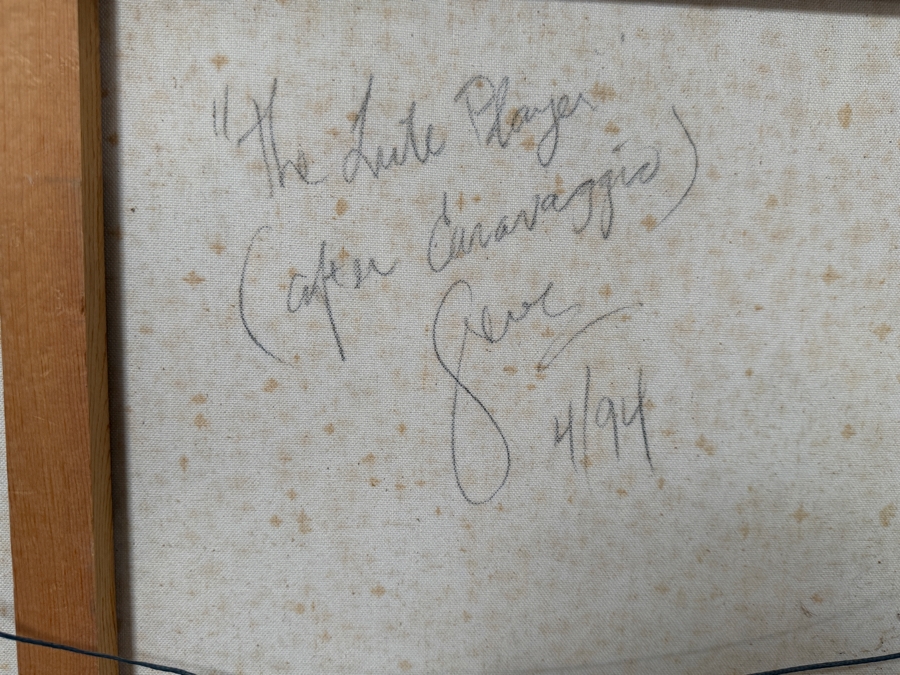 "The Lute Player
(after Caravaggio)
4/94